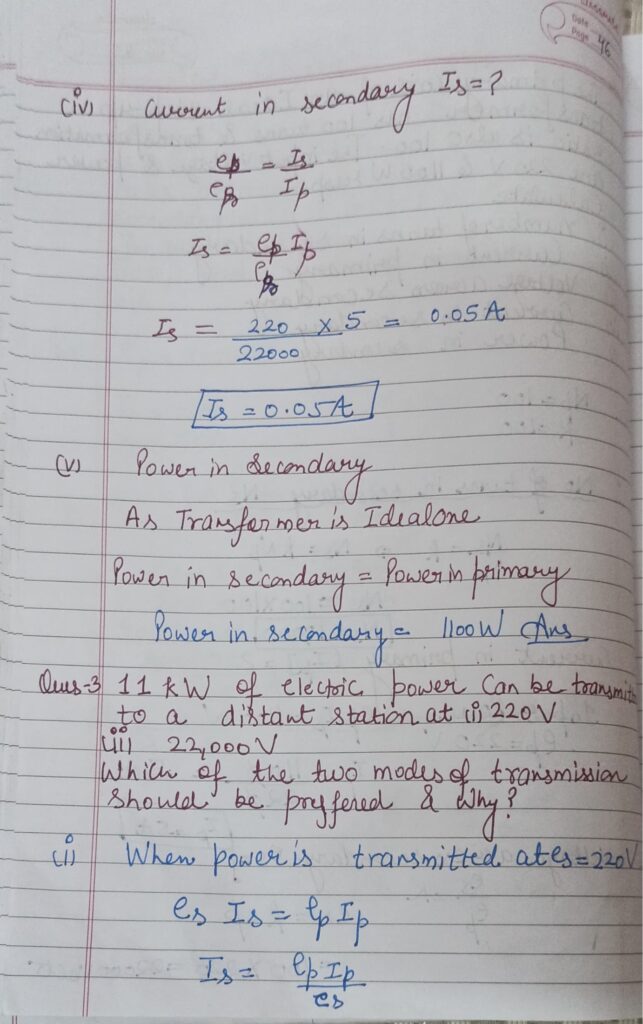 classmate
Date
Page 46
(iv) Current in secondary Is = ?
ep/es = Is/Ip
Is = ep/es Ip
Is = 220/22000 × 5 = 0.05 A
Is = 0.05A
(v) Power in Secondary
As Transformer is Idealone
Power in secondary = Power in primary
Power in secondary = 1100W Ans
Ques-3 11 kW of electric power Can be transmit
to a distant station at (i) 220 V
(ii) 22,000 V
Which of the two modes of transmission
should be preffered & Why?
(i) When power is transmitted at es = 220V
es Is = ep Ip
Is = ep Ip/es